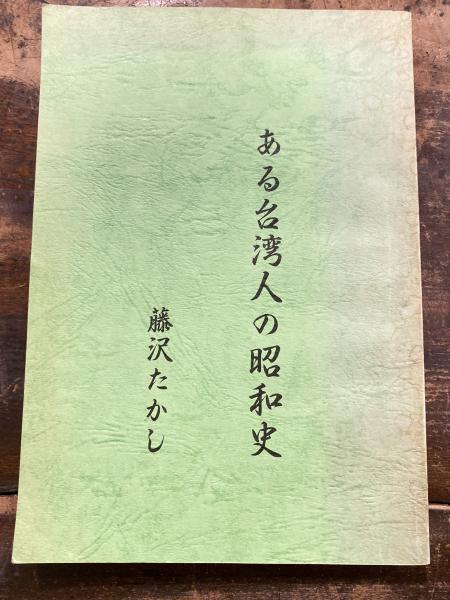 ある台湾人の昭和史
藤沢たかし